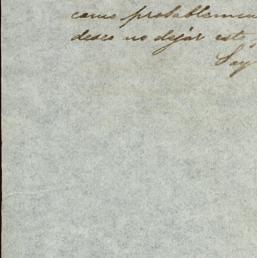 como probablemen
deseo no dejar este
Soy